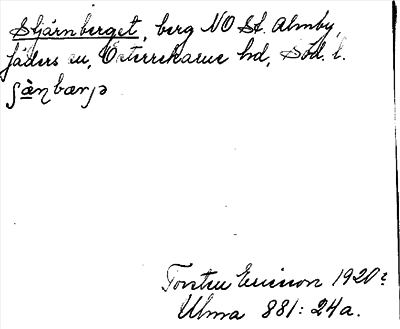 Stjärnberget, berg NO St. Almby,
Jäders sn, Österrekarne hd, Söd. l.
ʃæ̀ŋbærjə
Torsten Ericsson 1920?
Ulma 881:24a.